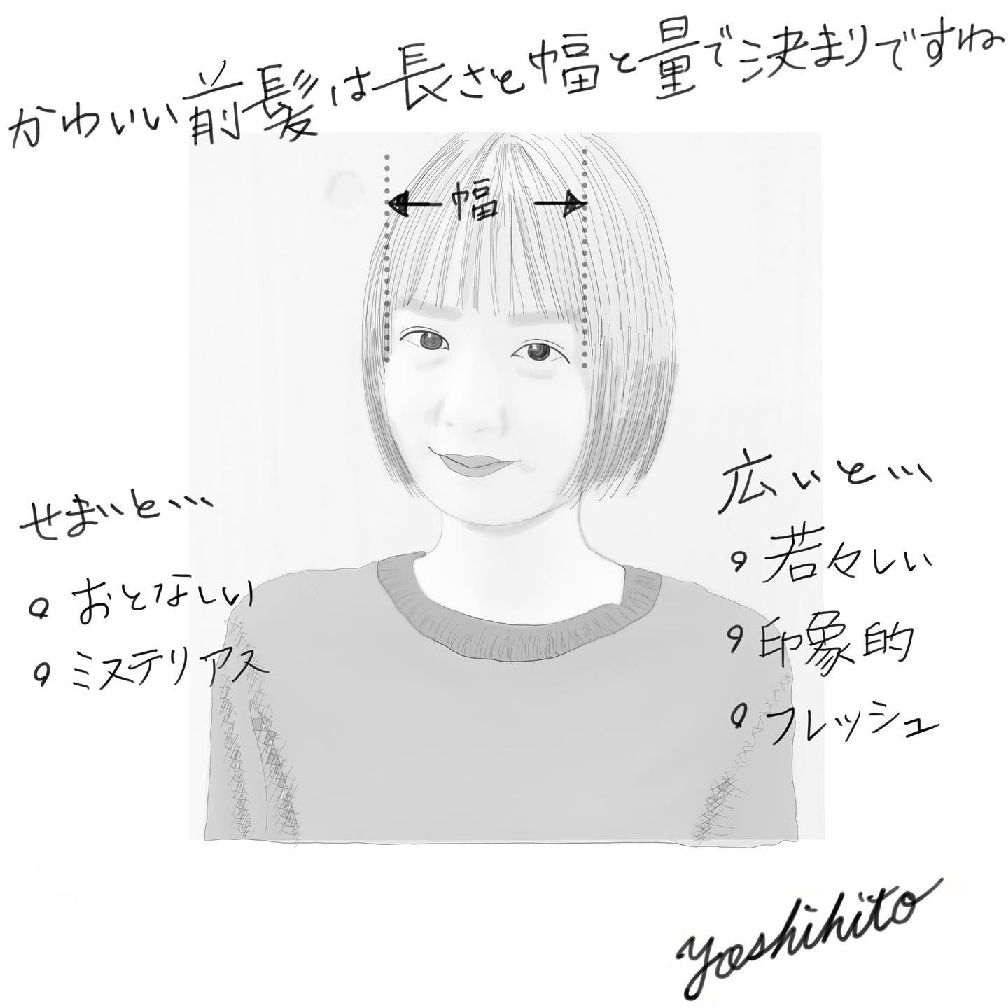 かわいい前髪は長さと幅と量で決まりですね
幅
せまいと…
おとなしい
ミステリアス
広いと…
若々しい
印象的
フレッシュ
Yoshihito